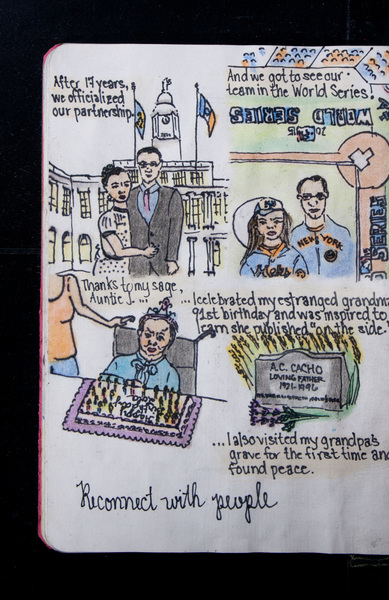 After 17 years,
we officialized
our partnership.
And we got to see our
team in the World Series!
WORLD SERIES
2015
NEW YORK
SERIES
Thanks to my sage,
Auntie J...
...I celebrated my estranged grandma
91st birthday and was inspired to
learn she published "on the side."
A.C. CACHO
LOVING FATHER
...I also visited my grandpa's
grave for the first time and
found peace.
Reconnect with people